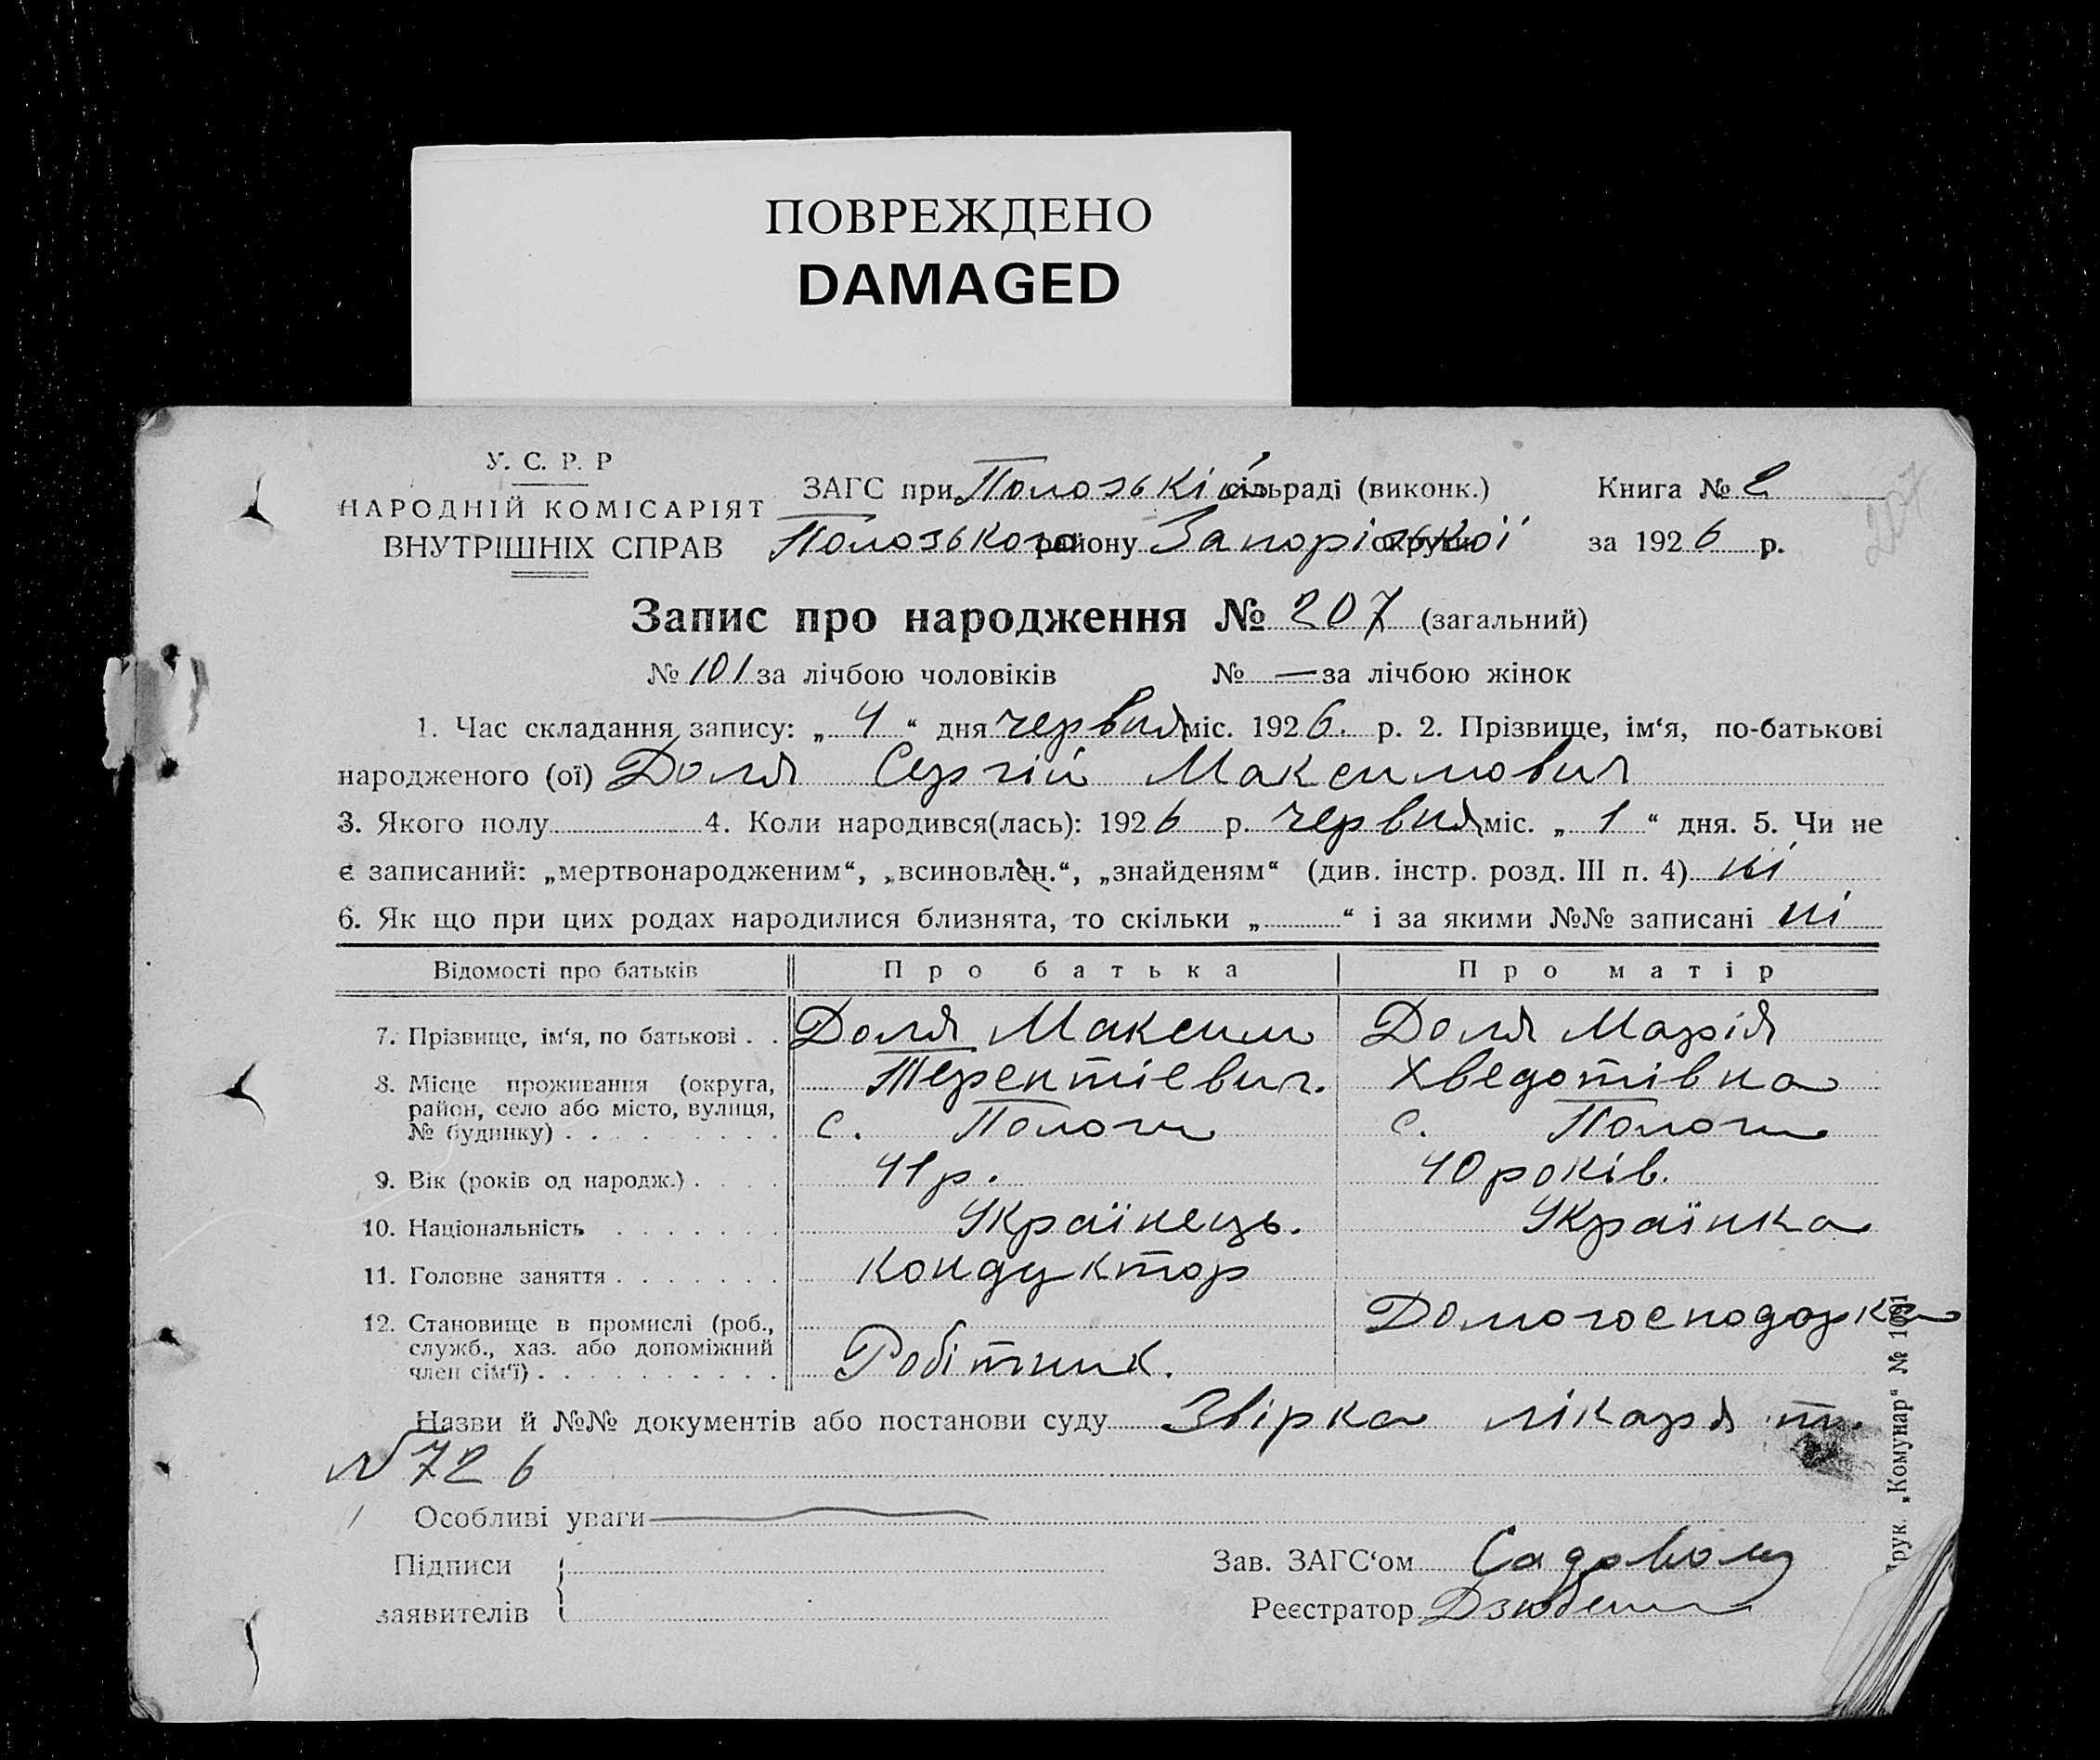 ПОВРЕЖДЕНО
DAMAGED
У. С. Р. Р
НАРОДНІЙ КОМІСАРІЯТ
ВНУТРІШНІХ СПРАВ
ЗАГС при Полозькій сільраді (виконк.)
Полозького району Запорізької округи
Книга № 2
за 1926 р.
207
Запис про народження № 207 (загальний)
№ 101 за лічбою чоловіків № — за лічбою жінок
1. Час складання запису: „ 4 “ дня червня міс. 1926. р. 2. Прізвище, ім‘я, по-батькові
народженого (ої) Доля Сергій Максимович
3. Якого полу 4. Коли народився(лась): 1926 р. червня міс. „ 1 “ дня. 5. Чи не
є записаний: „мертвонародженим“, „всиновлен.“, „знайденям“ (див. інстр. розд. III п. 4) ні
6. Як що при цих родах народилися близнята, то скільки „ “ і за якими №№ записані ні
Відомості про батьків Про батька Про матір
7. Прізвище, ім‘я, по батькові . . Доля Максим Доля Марія
Терентієвич. Хведотівна
8. Місце проживання (округа,
район, село або місто, вулиця,
№ будинку) . . . . . . . . с. Пологи с. Пологи
9. Вік (років од народж.) . . . . 41 р. 40 років.
10. Національність . . . . . . . Українець. Українка
11. Головне заняття . . . . . . . кондуктор
Домогосподарка
12. Становище в промислі (роб.,
служб., хаз. або допоміжний
член сім‘ї) . . . . . . . . . . Робітник.
Назви й №№ документів або постанови суду Звірка лікаря
N 726
Особливі уваги —
Підписи
заявителів
Зав. ЗАГС‘ом
Реєстратор
Друк. „Комунар“ № 1091